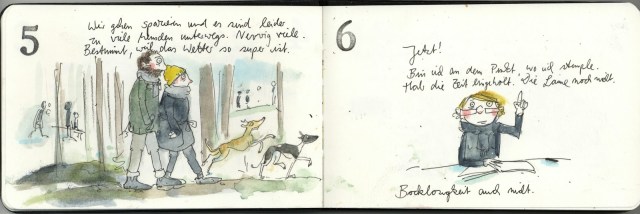 5
Wir gehen spazieren und es sind leider
zu viele Menschen unterwegs. Nervig viele.
Bestimmt, weil das Wetter so super ist.
6
Jetzt!
Bin ich an dem Punkt, wo ich stemple.
Hab die Zeit eingeholt. Die Laune noch nicht.
Bocklosigkeit auch nicht.